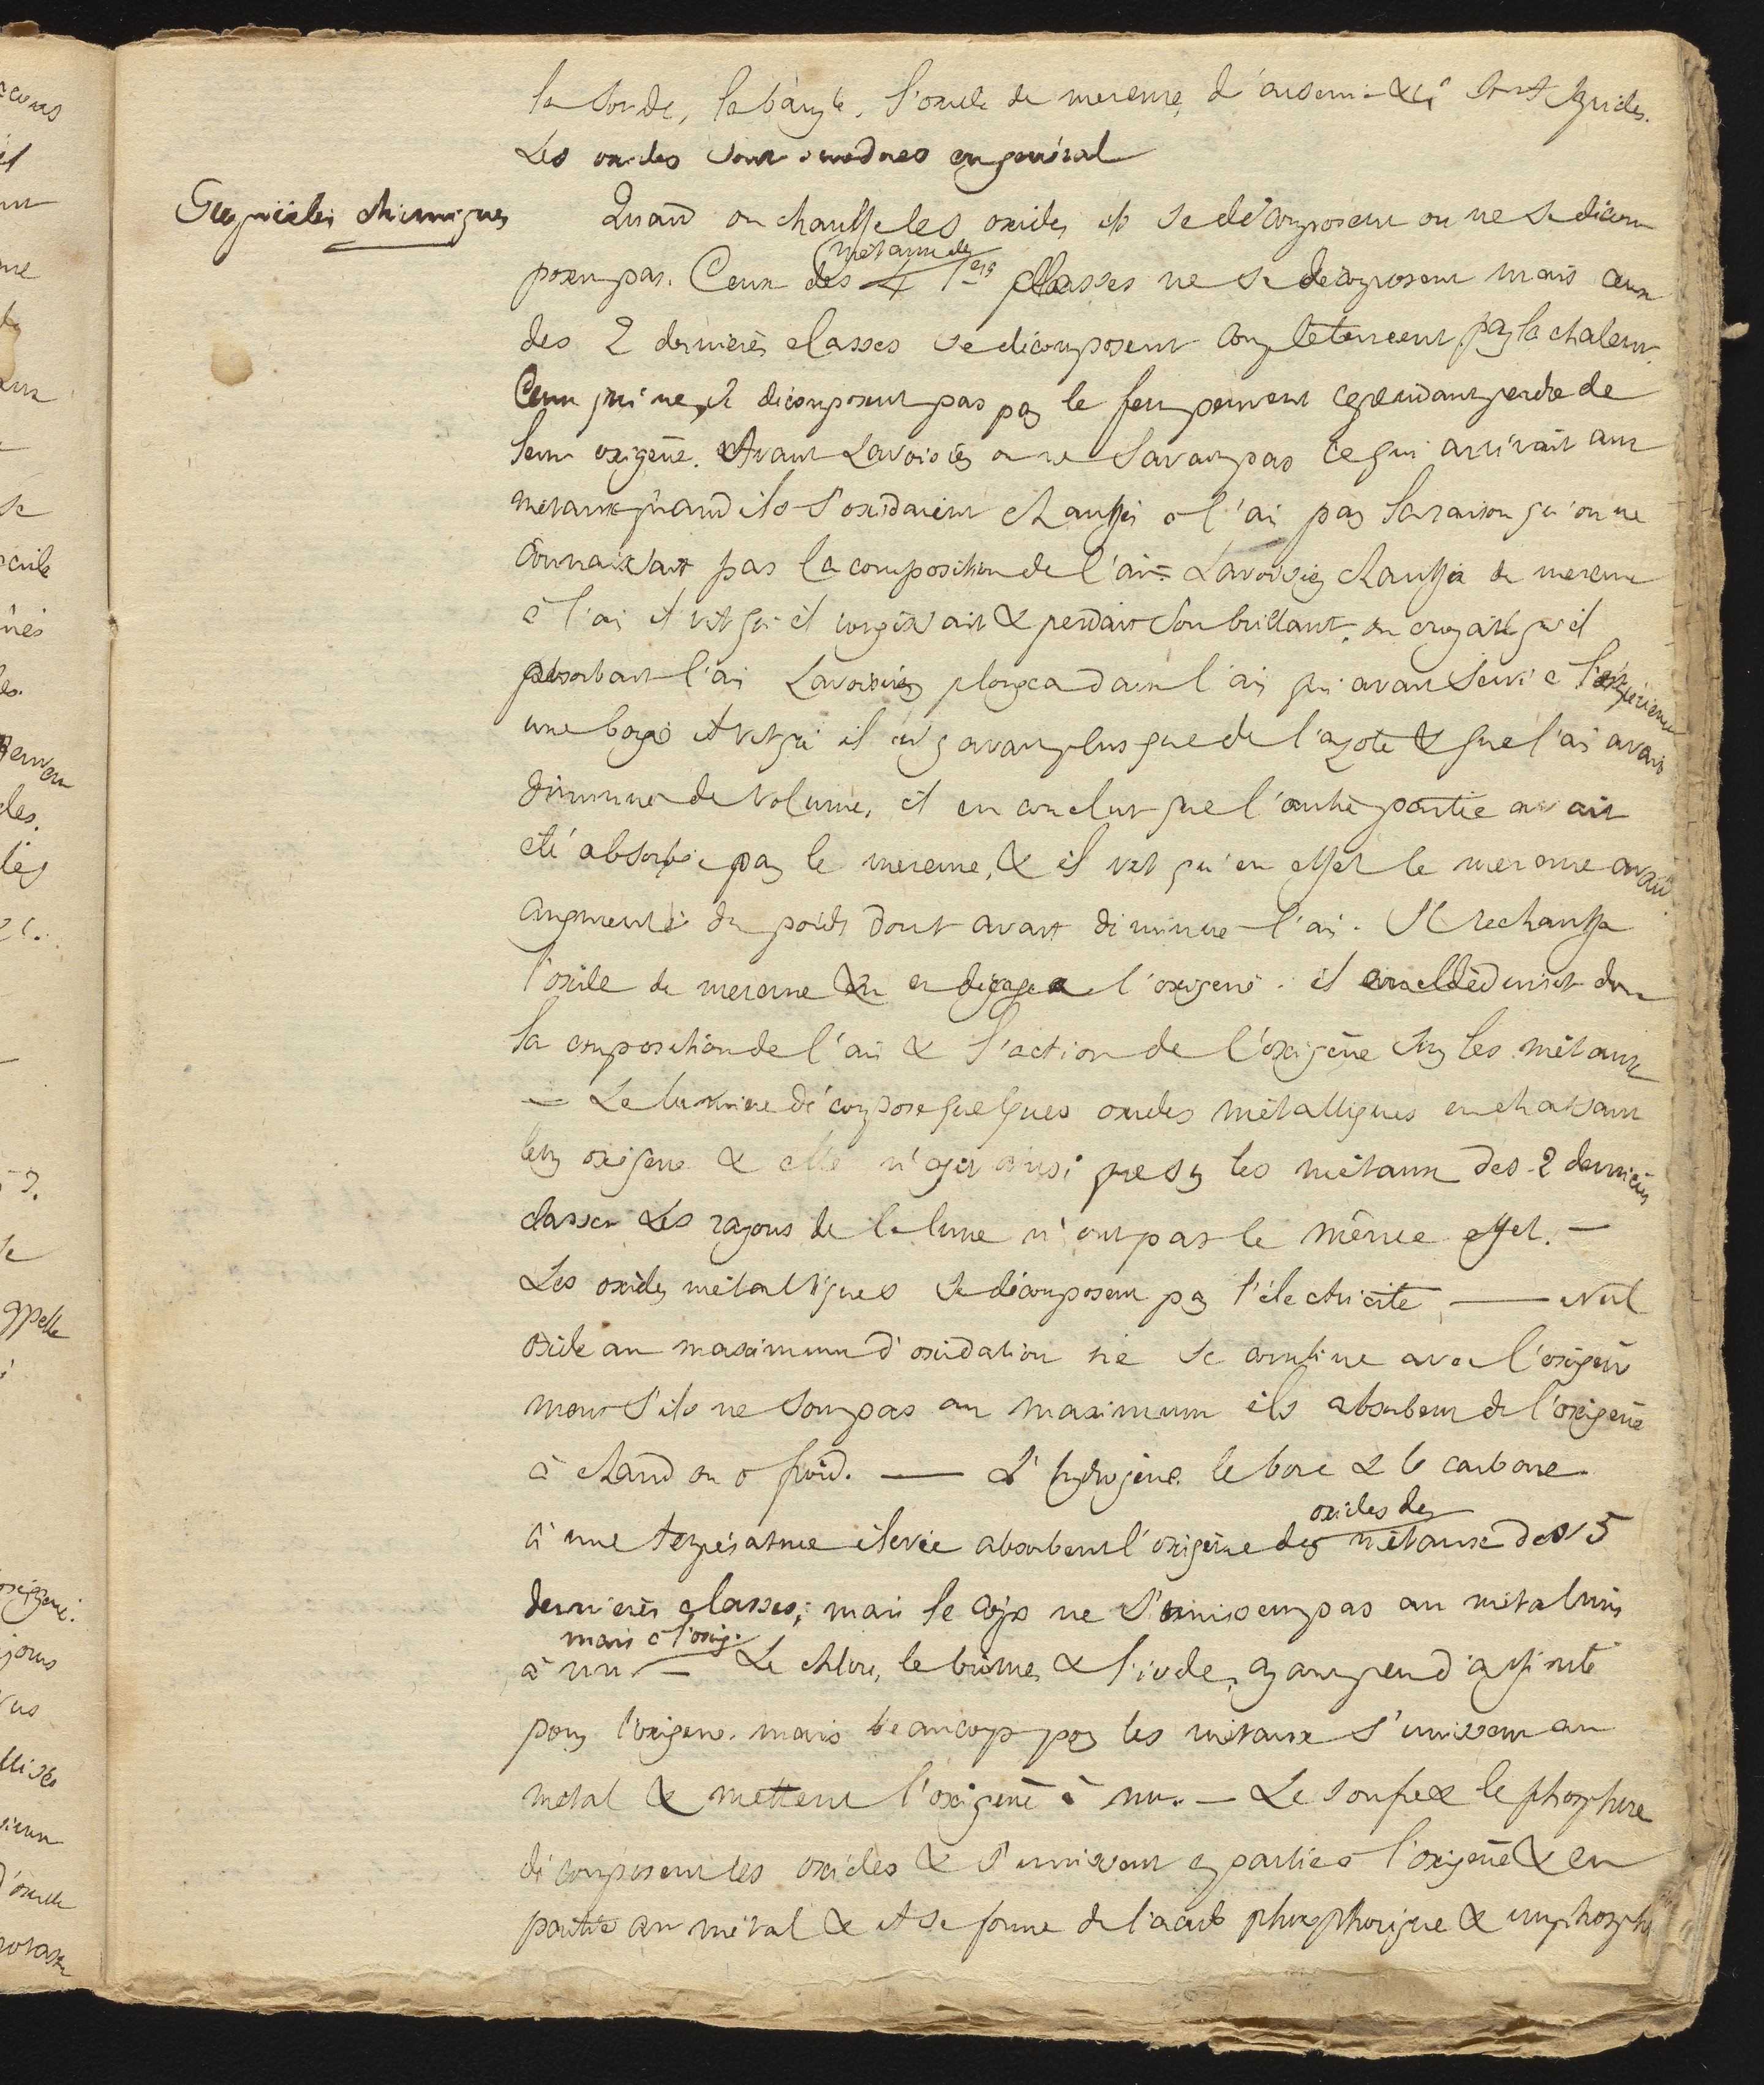 la soude, la baryte, l'oxide de mercure, d'arsenic &c sont
Les oxides sont inodores en général
Propriétés chimiques
Quand on chauffe les oxides ils se décomposent ou ne se décom
métaux des
posent pas. Ceux des 4 1ères classes ne se décomposent mais ceux
des 2 dernières classes se décomposent complètement par la chaleur.
Ceux qui ne se décomposent pas par le feu peuvent cependant perdre de
leur oxigène. Avant Lavoisier on ne savait pas ce qui arrivait aux
métaux quand ils s'oxidaient chauffés à l'air par la raison qu'on ne
connaissait pas la composition de l'air. Lavoisier chauffa du mercure
à l'air il vit qu'il rougissait & perdait son brillant, on croyait qu'il
absorbait l'air Lavoisier plongea dans l'air qui avait servi à l'expérience
une bougie et vit qu'il n'y avait plus que de l'azote & que l'air avait
diminué de volume, il en conclut que l'autre partie avait
été absorbée par le mercure, & il vit qu'en effet le mercure avait
augmenté du poids dont avait diminué l'air. Il rechauffa
l'oxide de mercure & en dégagea l'oxigène. il en déduisit donc
la composition de l'air & l'action de l'oxigène sur les métaux
— La lumière décompose quelques oxides métalliques en chassant
leur oxigène & elle n'agit ainsi que sur les métaux des 2 dernières
classes Les rayons de la lune n'ont pas le même effet. —
Les oxides métalliques se décomposent par l'électricité, — Nul
oxide au maximum d'oxidation ne se combine avec l'oxigène
mais s'ils ne sont pas au maximum ils absorbent de l'oxigène
à chaud ou à froid. — L'hydrogène, le bore & le carbone
oxides des
à une température élevée absorbent l'oxigène des métaux des 5
dernières classes, mais le corps ne s'unissent pas au métal mis
mais à l'oxig.
à nu. — Le chlore, le brôme, & l'iode, ayant peu d'affinité
pour l'oxigène, mais beaucoup pour les métaux s'unissent au
métal & mettent l'oxigène à nu. — Le soufre & le phosphore
décomposent les oxides & s'unissent en partie à l'oxigène & en
partie au métal & il se forme de l'acide phosphorique & un phosph